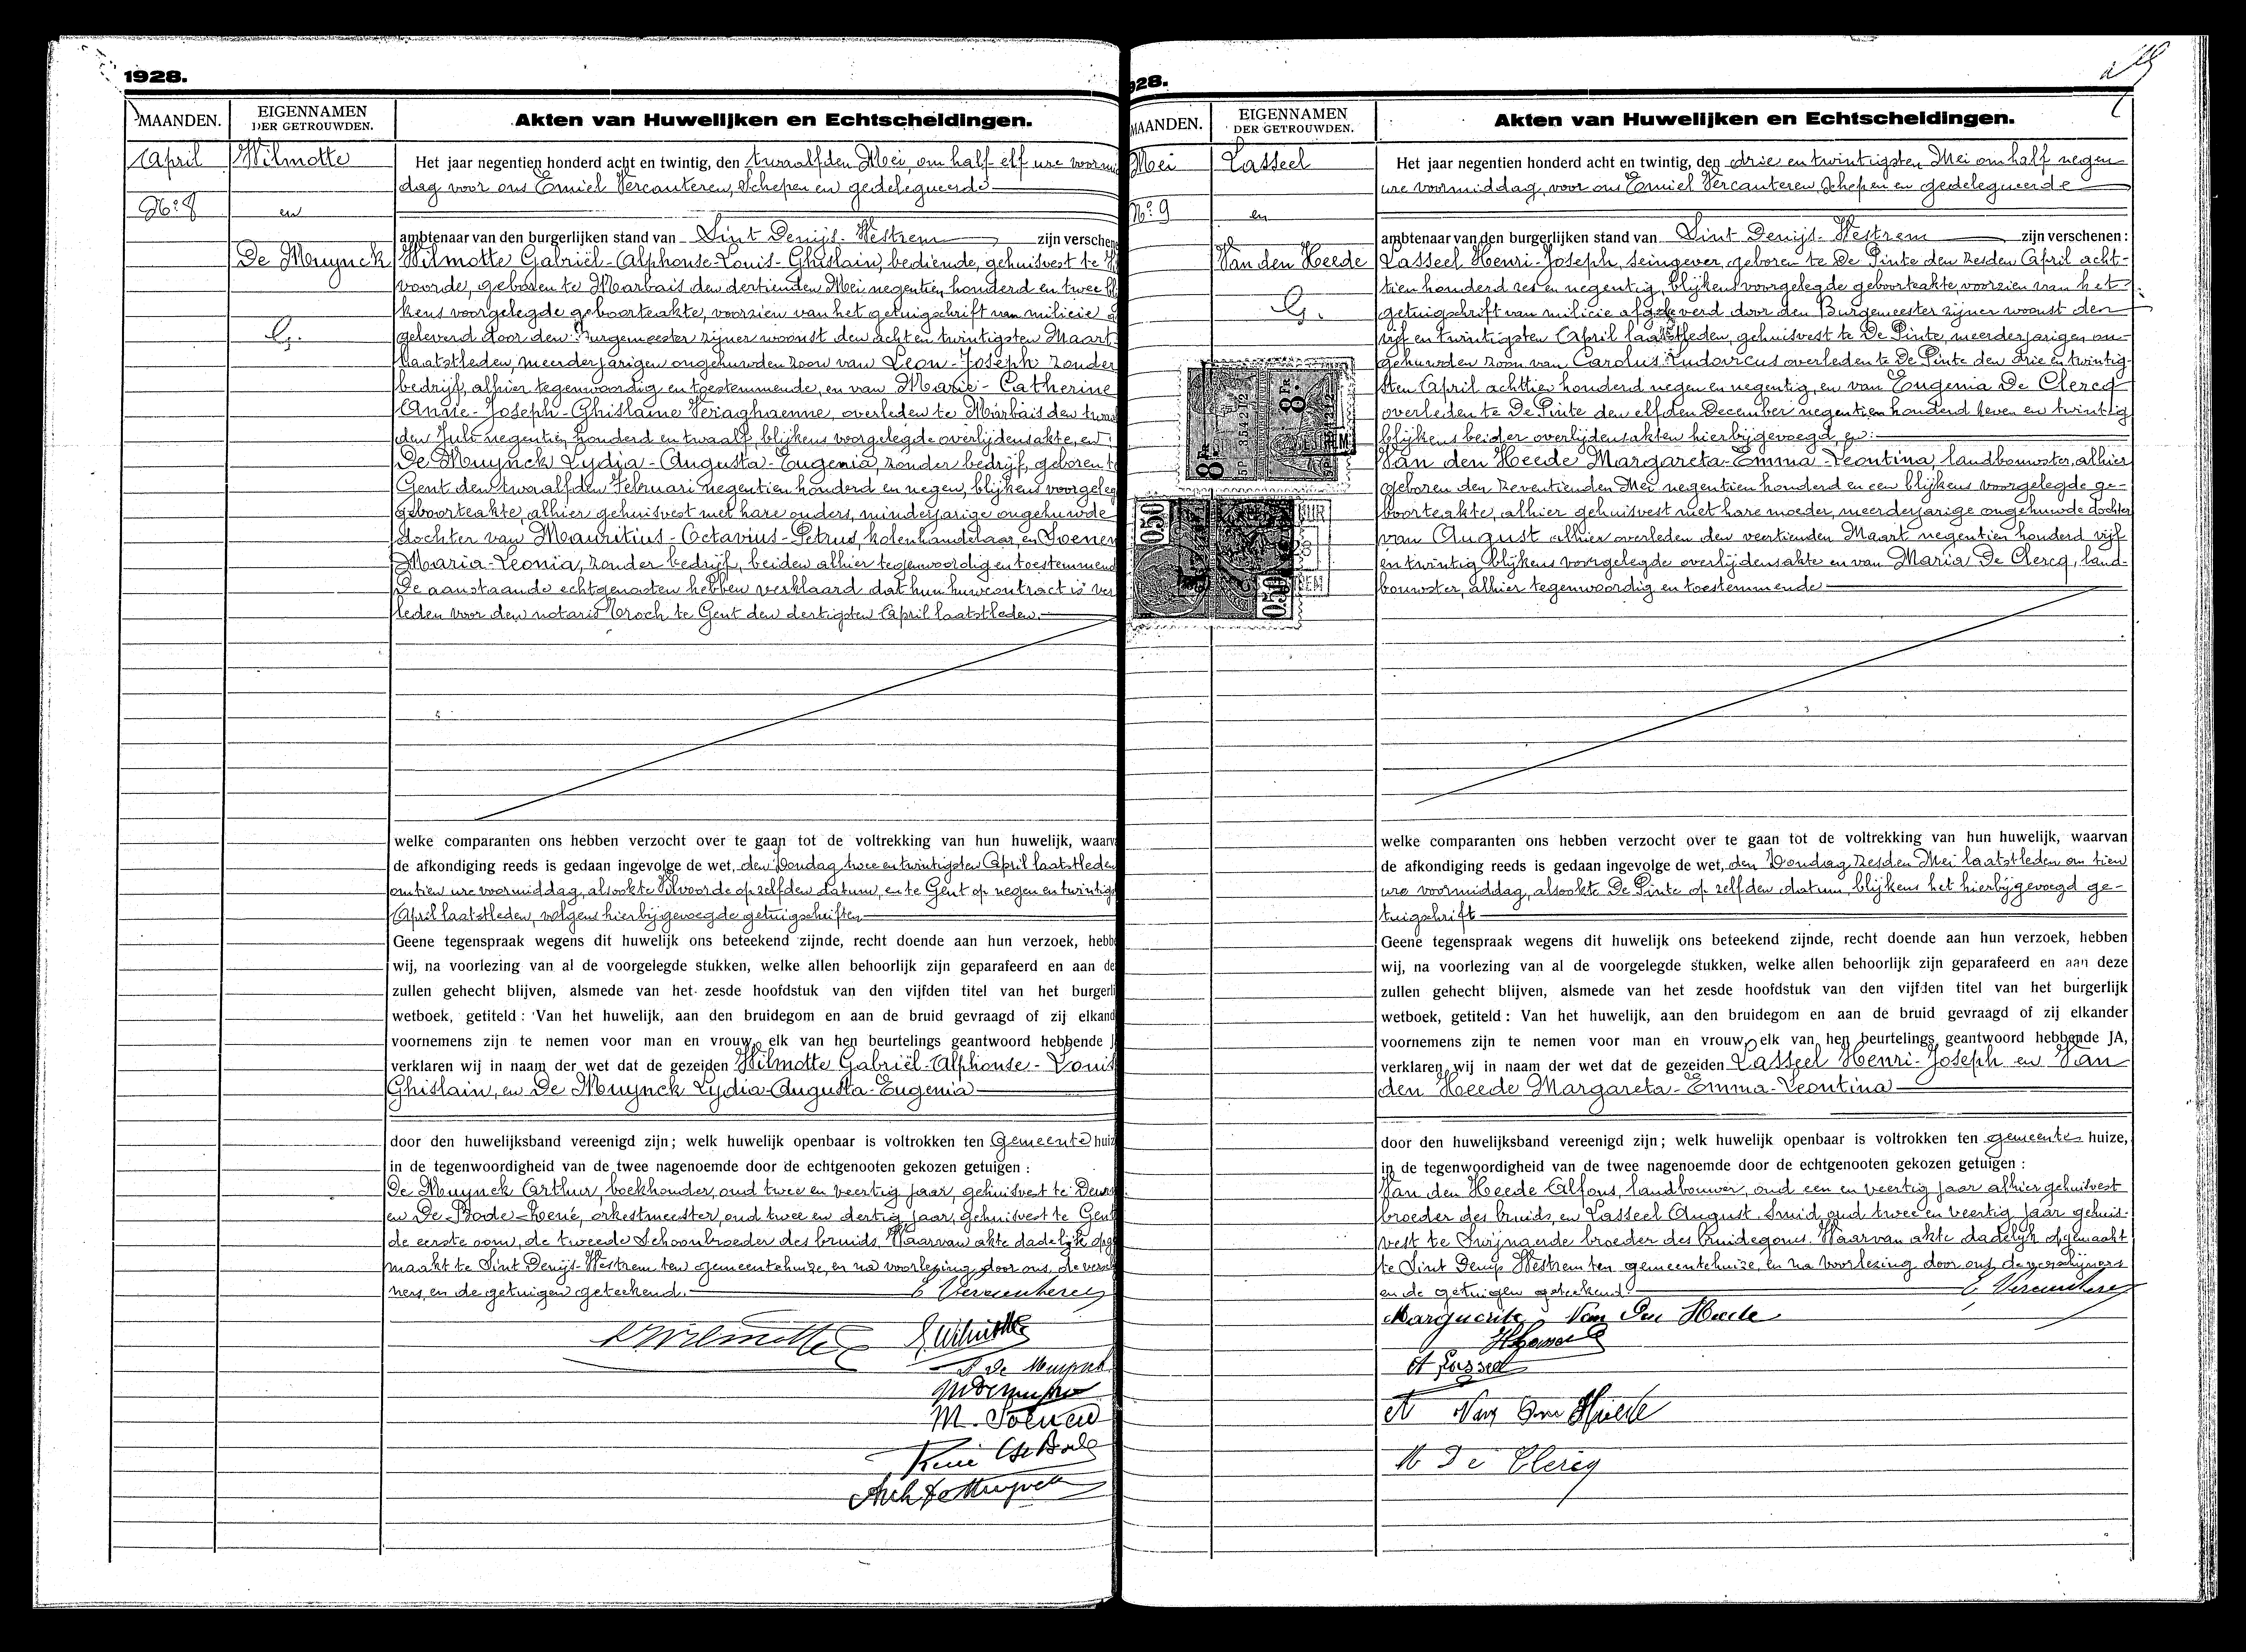 1928.
MAANDEN.
EIGENNAMEN
DER GETROUWDEN.
Akten van Huwelijken en Echtscheidingen.
April
Wilmotte
Nº 8
en
De Muynck
G.
Het jaar negentien honderd acht en twintig, den twaalfden Mei, om half elf ure voormid
dag voor ons Emiel Vercauteren, Schepen en gedelegueerde
ambtenaar van den burgerlijken stand van Sint Denijs-Westrem zijn verschene
Wilmotte Gabriël-Alphonse-Louis-Ghislain, bediende, gehuisvest te
voorde, geboren te Marbais den dertienden Mei negentien honderd en twee blij
kens voorgelegde geboorteakte, voorzien van het getuigschrift van milicie a
geleverd door den Burgemeester zijner woonst den acht en twintigsten Maart
laatstleden, meerderjarigen ongehuwden zoon van Leon-Joseph zonder
bedrijf, alhier tegenwoordig en toestemmende, en van Marie-Catherine
Annie-Joseph-Ghislaine overleden te Marbais den
den Juli negentien honderd en twaalf, blijkens voorgelegde overlijdensakte, en
De Muynck Lydia-Augusta-Eugenia, zonder bedrijf, geboren te
Gent den twaalfden Februari negentien honderd en negen, blijkens voorgeleg
geboorteakte, alhier gehuisvest met hare ouders, minderjarige ongehuwde
dochter van Mauritius-Octavius-Petrus, kolenhandelaar, en Soenen
Maria-Leonia, zonder bedrijf, beiden alhier tegenwoordig en toestemmend
De aanstaande echtgenooten hebben verklaard dat hun huwcontract is ver
leden voor den notaris te Gent den dertigsten April laatstleden.
welke comparanten ons hebben verzocht over te gaan tot de voltrekking van hun huwelijk, waarv
de afkondiging reeds is gedaan ingevolge de wet, den Zondag twee en twintigsten April laatstleden
om tien ure voormiddag, alsook te Vilvoorde op zelfden datum, en te Gent op negen en twintigs
April laatstleden, volgens hierbijgevoegde getuigschriften
Geene tegenspraak wegens dit huwelijk ons beteekend zijnde, recht doende aan hun verzoek, hebb
wij, na voorlezing van al de voorgelegde stukken, welke allen behoorlijk zijn geparafeerd en aan de
zullen gehecht blijven, alsmede van het zesde hoofdstuk van den vijfden titel van het burgerli
wetboek, getiteld : Van het huwelijk, aan den bruidegom en aan de bruid gevraagd of zij elkand
voornemens zijn te nemen voor man en vrouw, elk van hen beurtelings geantwoord hebbende J
verklaren wij in naam der wet dat de gezeiden Wilmotte Gabriël-Alphonse-Louis
Ghislain, en De Muynck Lydia-Augusta-Eugenia
door den huwelijksband vereenigd zijn; welk huwelijk openbaar is voltrokken ten Gemeente huiz
in de tegenwoordigheid van de twee nagenoemde door de echtgenooten gekozen getuigen :
De Muynck Arthur, boekhouder, oud twee en veertig jaar, gehuisvest te Deur
en De Bode René, orkestmeester, oud twee en dertig jaar, gehuisvest te Gent
de eerste oom, de tweede Schoonbroeder des bruids. Waarvan akte dadelijk opge
maakt te Sint Denijs-Westrem ten gemeentehuize, en na voorlezing door ons, de versch
ners en de getuigen geteekend. E Vercauteren
L Wilmotte G Wilmotte
L De Muynck
M De Muynck
M. Soenen
René De Bode
Arth De Muynck
928.
MAANDEN.
EIGENNAMEN
DER GETROUWDEN.
Akten van Huwelijken en Echtscheidingen.
Mei
Lasseel
Nº 9
en
Van den Heede
G.
8 FR
8 FR
0.50
0.50
Het jaar negentien honderd acht en twintig, den drie en twintigsten Mei om half negen
ure voormiddag, voor ons Emiel Vercauteren Schepen en gedelegueerde
ambtenaar van den burgerlijken stand van Sint Denijs-Westrem zijn verschenen :
Lasseel Henri-Joseph, seingever, geboren te De Pinte den zesden April acht-
tien honderd zes en negentig, blijkens voorgelegde geboorteakte, voorzien van het
getuigschrift van milicie afgeleverd door den Burgemeester zijner woonst den
vijf en twintigsten April laatstleden, gehuisvest te De Pinte, meerderjarigen on-
gehuwden zoon van Carolus-Ludovicus overleden te De Pinte den drie en twintig-
sten April achttien honderd negen en negentig, en van Eugenia De Clercq
overleden te De Pinte den elfden December negentien honderd zeven en twintig
blijkens beider overlijdensakten hierbijgevoegd, en:
Van den Heede Margareta-Emma-Leontina, landbouwster, alhier
geboren den zeventienden Mei negentien honderd en een blijkens voorgelegde ge-
boorteakte, alhier gehuisvest met hare moeder, meerderjarige ongehuwde dochter
van August alhier overleden den veertienden Maart negentien honderd vijf
en twintig blijkens voorgelegde overlijdensakte en van Maria De Clercq, land-
bouwster, alhier tegenwoordig en toestemmende
welke comparanten ons hebben verzocht over te gaan tot de voltrekking van hun huwelijk, waarvan
de afkondiging reeds is gedaan ingevolge de wet, den Zondag zesden Mei laatstleden om tien
ure voormiddag, alsook te De Pinte op zelfden datum, blijkens het hierbijgevoegd ge-
tuigschrift
Geene tegenspraak wegens dit huwelijk ons beteekend zijnde, recht doende aan hun verzoek, hebben
wij, na voorlezing van al de voorgelegde stukken, welke allen behoorlijk zijn geparafeerd en aan deze
zullen gehecht blijven, alsmede van het zesde hoofdstuk van den vijfden titel van het burgerlijk
wetboek, getiteld : Van het huwelijk, aan den bruidegom en aan de bruid gevraagd of zij elkander
voornemens zijn te nemen voor man en vrouw, elk van hen beurtelings geantwoord hebbende JA,
verklaren wij in naam der wet dat de gezeiden Lasseel Henri-Joseph en Van
den Heede Margareta-Emma-Leontina
door den huwelijksband vereenigd zijn; welk huwelijk openbaar is voltrokken ten gemeente huize,
in de tegenwoordigheid van de twee nagenoemde door de echtgenooten gekozen getuigen :
Van den Heede Alfons, landbouwer, oud een en veertig jaar alhier gehuisvest
broeder des bruids, en Lasseel August Smid, oud twee en veertig jaar gehuis-
vest te Swijnaerde broeder des bruidegoms. Waarvan akte dadelijk opgemaakt
te Sint Denijs Westrem ten gemeentehuize, en na voorlezing door ons, de verschijners
en de getuigen geteekend. E Vercauteren
Marguerite Van Den Heede
H Lasseel
A Lasseel
A Van Den Heede
M De Clercq